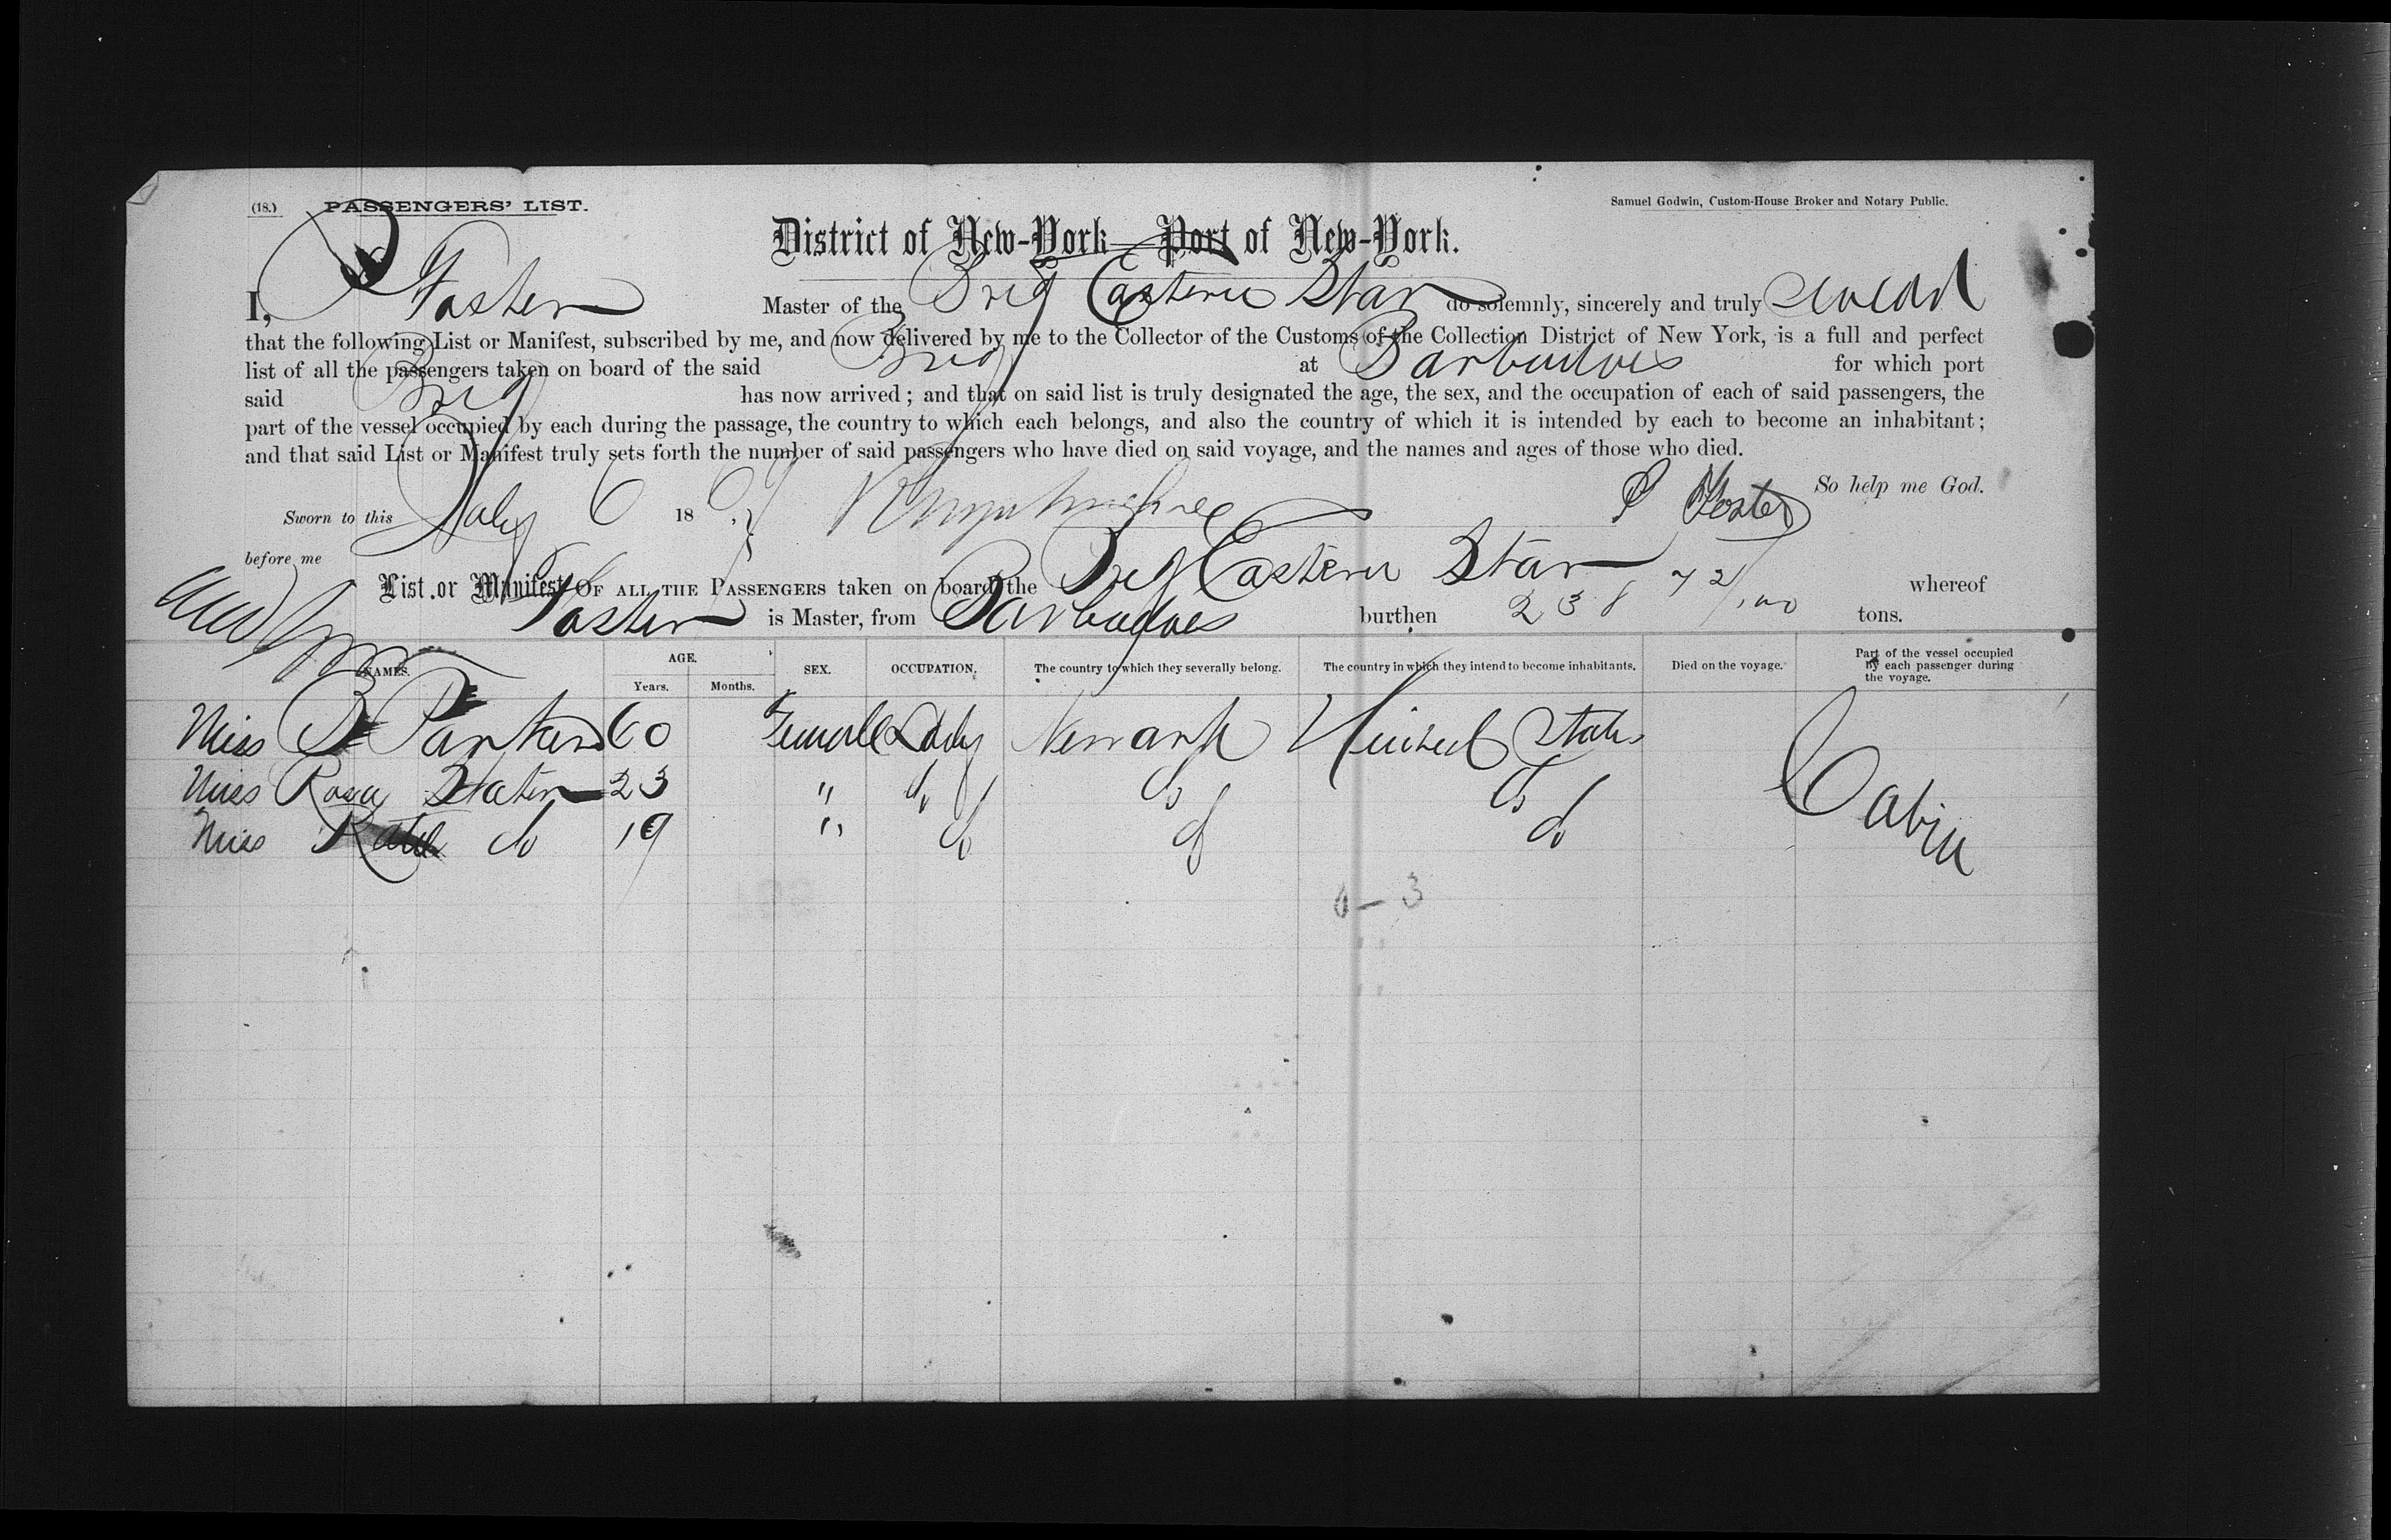 (18.) PASSENGERS' LIST.
Samuel Godwin, Custom-House Broker and Notary Public.
District of New-York—Port of New-York.
I, P Foster Master of the Brig Eastern Star do solemnly, sincerely and truly swear
that the following List or Manifest, subscribed by me, and now delivered by me to the Collector of the Customs of the Collection District of New York, is a full and perfect
list of all the passengers taken on board of the said Brig at Barbadoes for which port
said Brig has now arrived; and that on said list is truly designated the age, the sex, and the occupation of each of said passengers, the
part of the vessel occupied by each during the passage, the country to which each belongs, and also the country of which it is intended by each to become an inhabitant;
and that said List or Manifest truly sets forth the number of said passengers who have died on said voyage, and the names and ages of those who died.
So help me God.
Sworn to this July 6 18 P Foster
before me
List or Manifest OF ALL THE PASSENGERS taken on board the Brig Eastern Star whereof
Foster is Master, from Barbadoes burthen 238 72/100 tons.
NAMES. AGE. Years. Months. SEX. OCCUPATION. The country to which they severally belong. The country in which they intend to become inhabitants. Died on the voyage. Part of the vessel occupied by each passenger during the voyage.
Miss B Parker 60 Female Lady Newark United States Cabin
Miss Rosa Slater 23 " do do do
Miss Kate do 19 " do do do
0—3